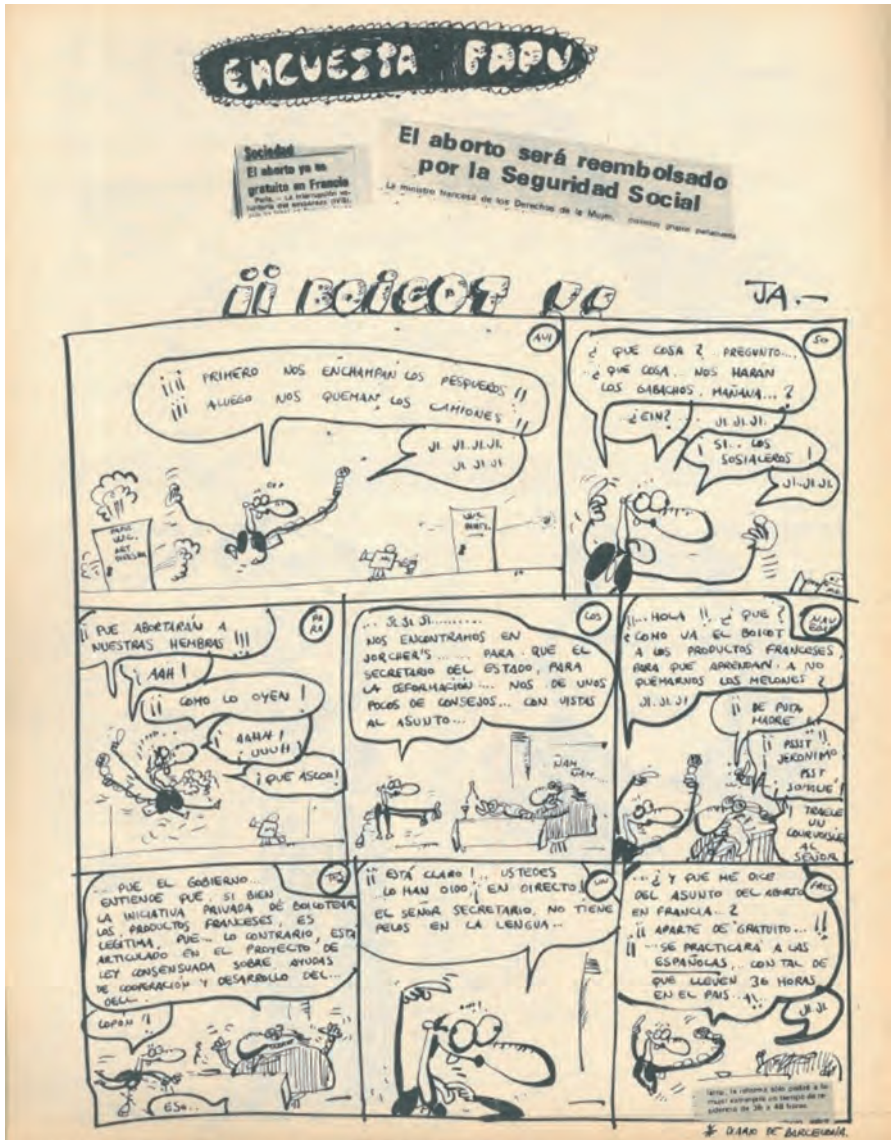 ENCUESTA PAPU
Sociedad
El aborto ya es
gratuito en Francia
París. — La interrupción vo-
El aborto será reembolsado
por la Seguridad Social
La ministro francesa de los Derechos de la Mujer,
¡¡ BOICOT !!
JA.—
¡¡¡ PRIMERO NOS ENCHAMPAN LOS PESQUEROS !!
¡¡¡ ALUEGO NOS QUEMAN LOS CAMIONES !!!
JI. JI. JI. JI.
JI. JI. JI.
SO
¿ QUE COSA ? PREGUNTO...
¿ QUE COSA... NOS HARAN
LOS GABACHOS, MAÑANA... ?
¿EIN?
JI. JI. JI.
¡ SI... LOS
SOSIALEROS !
JI.. JI. JI.
PA
RA
¡¡ PUE ABORTARÁN A
NUESTRAS HEMBRAS !!!
¡ AAH !
¡¡ COMO LO OYEN !
¡ AAHH !
¡ UUUH !
¡ QUE ASCOO!
LOS
... JI. JI JI..........
NOS ENCONTRAMOS EN
JORCHER'S ...... PARA QUE EL
SECRETARIO DEL ESTADO, PARA
LA DEFORMACIÓN.... NOS DE UNOS
POCOS DE CONSEJOS... CON VISTAS
AL ASUNTO...
ÑAM
ÑAM...
¡¡... HOLA !! ¿ QUE ?
¿ COMO VA EL BOICOT
A LOS PRODUCTOS FRANCESES,
PARA QUE APRENDAN A NO
QUEMARNOS LOS MELONES ?
JI. JI. JI
¡¡ DE PUTA
MADRE !!
¡ PSST
JERONIMO
PST
¡ TRAELE
UN
AL
SEÑOR
... PUE EL GOBIERNO
ENTIENDE QUE, SI BIEN
LA INICIATIVA PRIVADA DE BOICOTEAR
LOS PRODUCTOS FRANCESES, ES
LEGÍTIMA, PUE... LO CONTRARIO, ESTA
ARTICULADO EN EL PROYECTO DE
LEY CONSENSUADA SOBRE AYUDAS
DE COOPERACIÓN Y DESARROLLO DEL...
DELL..
COPÓN !!
ESO..
UN
¡¡ ESTÁ CLARO !.. USTEDES
LO HAN OIDO ¡¡ EN DIRECTO !
EL SEÑOR SECRETARIO, NO TIENE
PELOS EN LA LENGUA..
... ¿ Y QUE ME DICE
DEL ASUNTO DEL ABORTO
EN FRANCIA.. ?
¡¡ APARTE DE GRATUITO... !!
¡¡ ... SE PRACTICARÁ A LAS
ESPAÑOLAS... CON TAL DE
QUE LLEVEN 36 HORAS
EN EL PAIS... !!
JI. JI
mujer extranjera un tiempo de re-
sidencia de 36 a 48 horas.
* DIARIO DE BARCELONA.